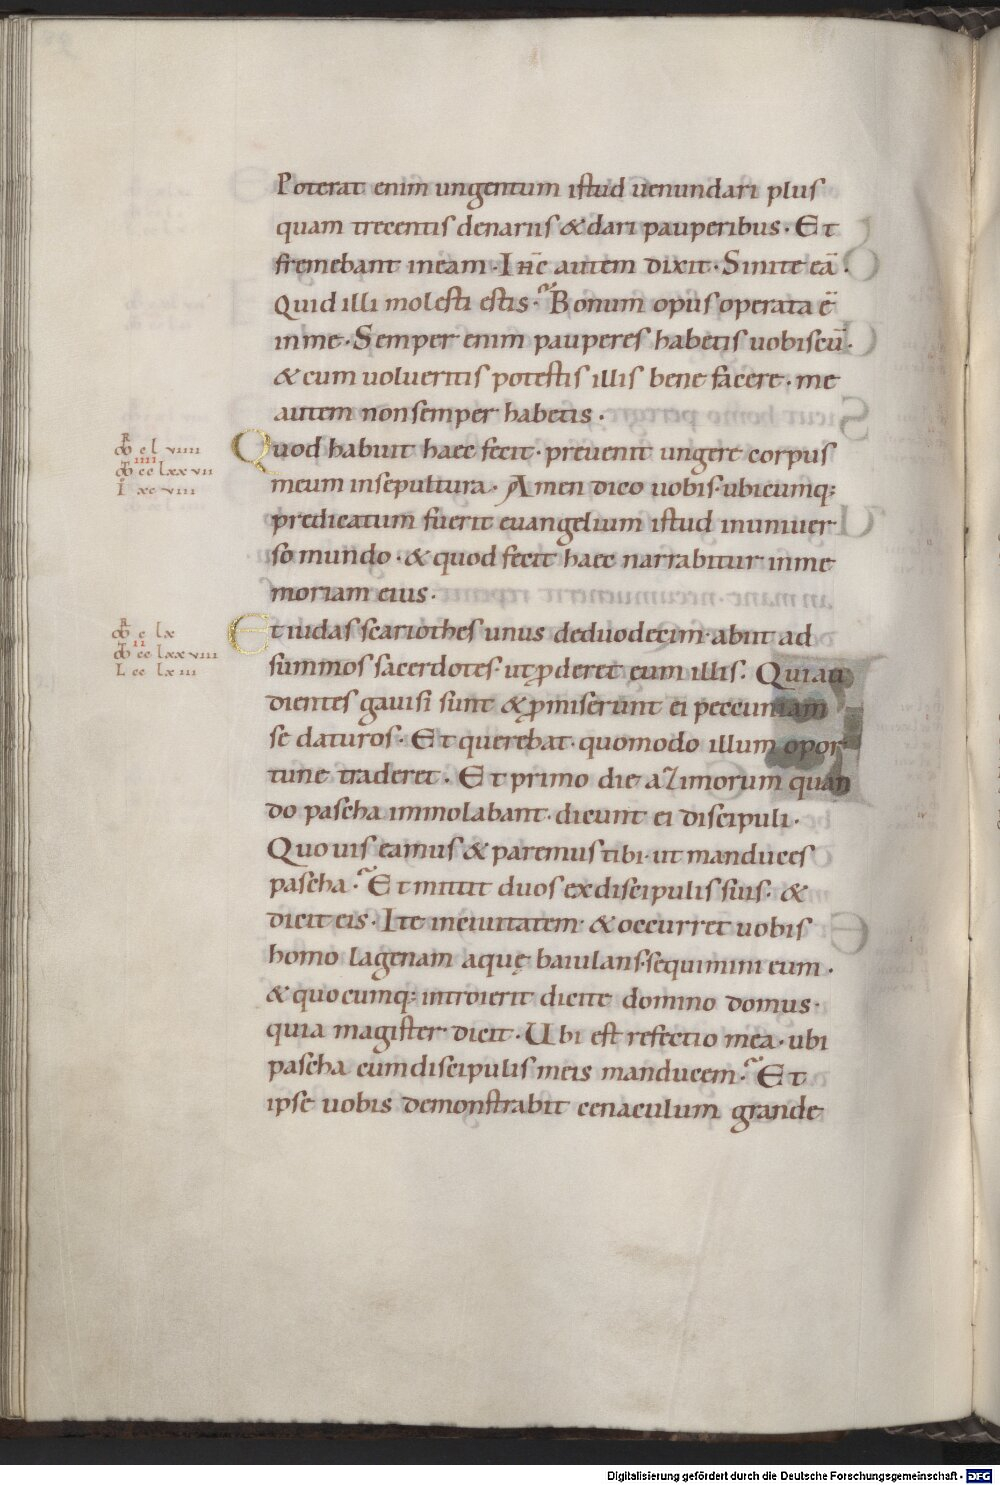 Poterat enim ungentum istud uenundari plus
quam trecentis denariis & dari pauperibus · Et
fremebant in eam · Ihc̄ autem dixit · Sinite eā ·
Quid illi molesti estis · Bonum opus operata ē
in me · Semper enim pauperes habetis uobiscū ·
& cum uolueritis potestis illis bene facere · me
autem non semper habetis ·
Quod habuit haec fecit · preuenit ungere corpus
meum in sepultura · Amen dico uobis · ubicumq;
predicatum fuerit euangelium istud in uniuer
so mundo · & quod fecit haec narrabitur in me
moriam eius ·
R
e l viiii
iiii
cc lxxvii
I xc viii
Et iudas scariothes unus de duodecim · abiit ad
summos sacerdotes · ut ꝓderet eum illis · Qui au
dientes gauisi sunt & ꝓmiserunt ei peccuniam
se daturos · Et querebat · quomodo illum opor
tune traderet · Et primo die azimorum quan
do pascha immolabant · dicunt ei discipuli ·
Quo uis eamus & paremus tibi · ut manduces
pascha · Et mittit duos ex discipulis suis · &
dicit eis · Ite in ciuitatem · & occurret uobis
homo lagenam aquę baiulans · sequimini eum ·
& quocumq; introierit dicite domino domus ·
quia magister dicit · Ubi est refectio mea · ubi
pascha cum discipulis meis manducem · Et
ipse uobis demonstrabit cenaculum grande
R
e lx
ii
cc lxxviii
L cc lxiii
Digitalisierung gefördert durch die Deutsche Forschungsgemeinschaft - DFG